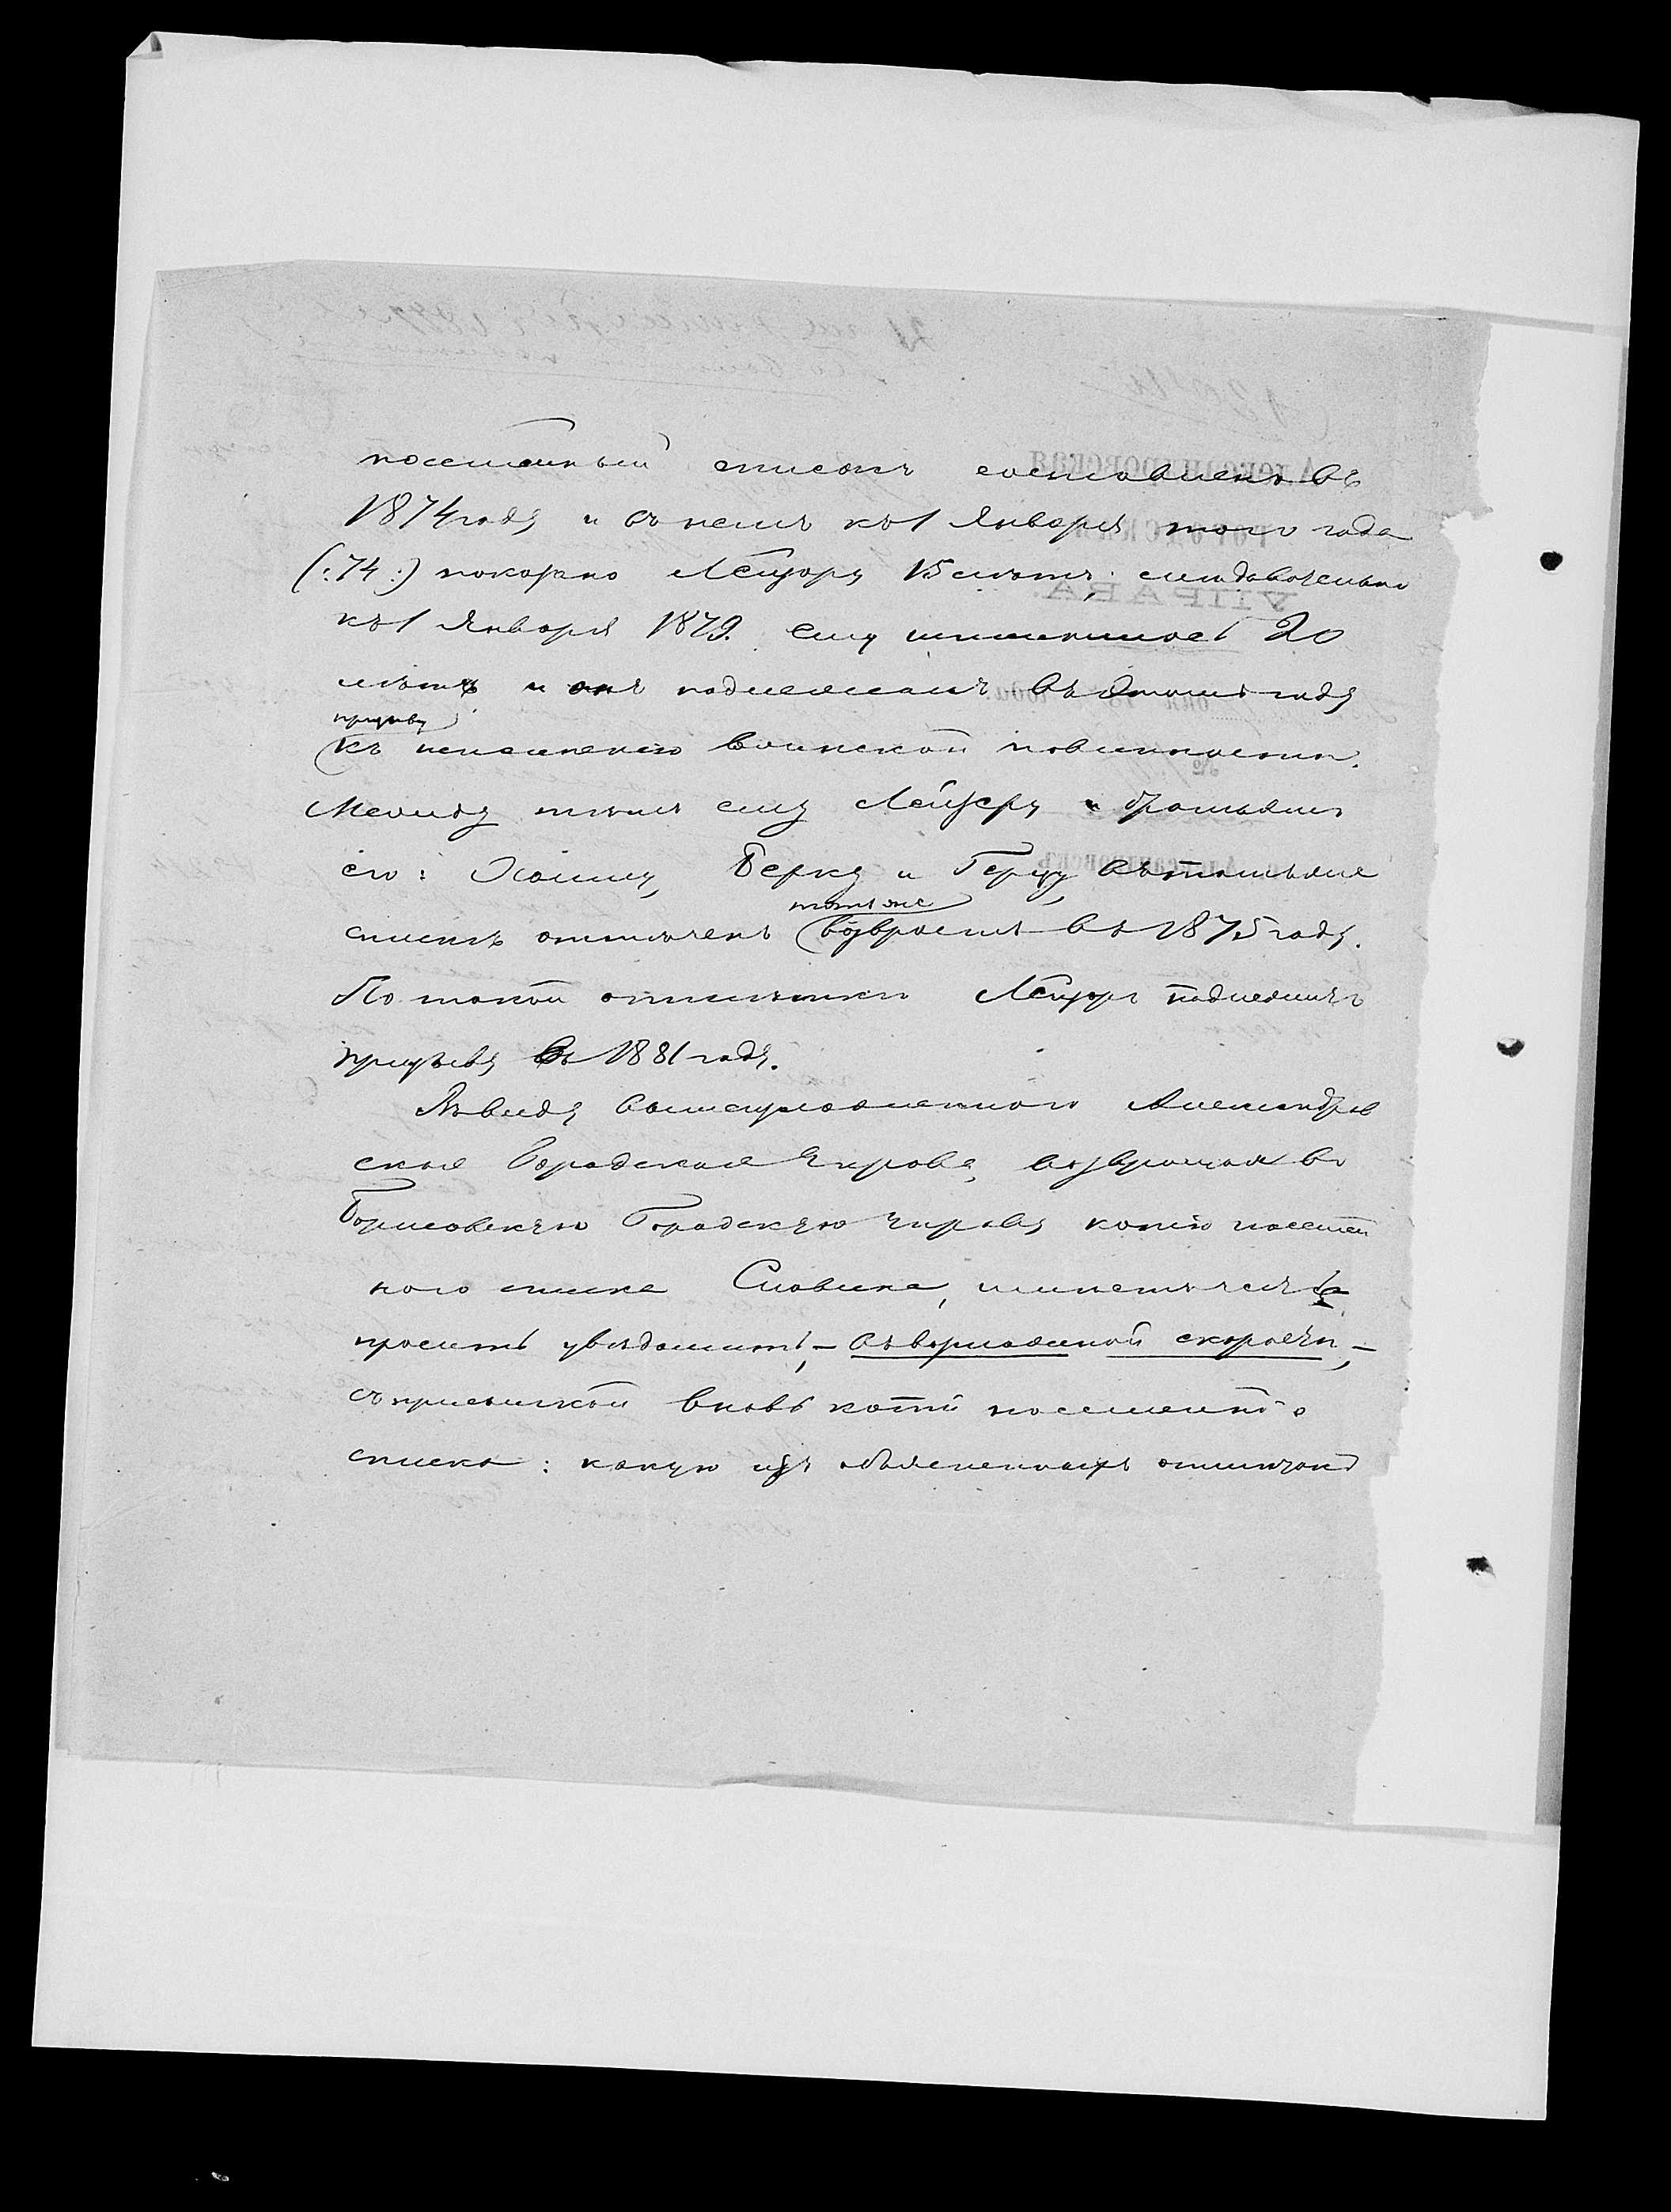 посемейный списокъ составленъ въ
1874 году и въ немъ къ 1 Января того года
(:74:) показано Лейзеру 15 лѣтъ; слѣдовательно
къ 1 Января 1879. ему исполнилось 20
лѣтъ и онъ подлежалъ въ этомъ году
призыву
къ исполненію воинской повинности.
Между тѣмъ ему Лейзеру и братьямъ
его: Хаиму, Берку и Герцу,
тотъ же
списокъ отмѣченъ возрастъ въ 1875 году.
По такой отмѣткѣ Лейзеръ подлежитъ
призыву въ 1881 году.
Въ виду вышеизложеннаго Александров
ская Городская Управа, возвращая въ
Борисовскую Городскую Управу копію посемей
наго списка Славина,
проситъ увѣдомить, – съ возможной скоростью, –
съ присылкой вновь копіи посемейнаго
списка: какую изъ объясненныхъ отмѣтокъ
Александровская
Городская
УПРАВА.